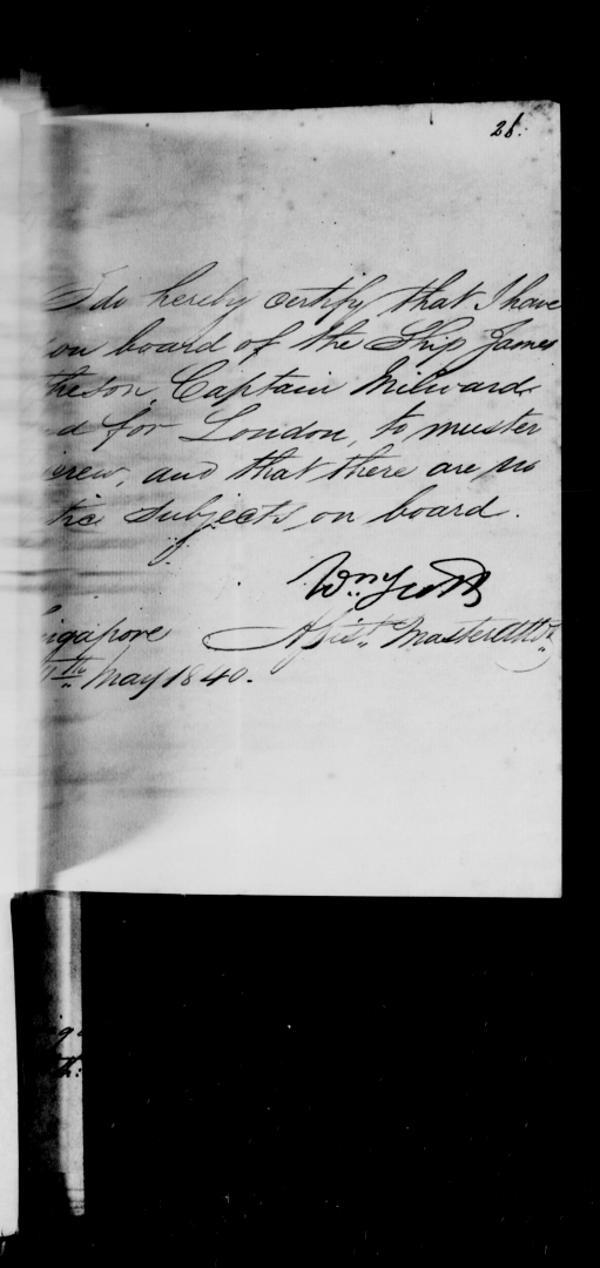 26.
I do hereby certify that I have
on board of the Ship James
theson, Captain Milward
d for London, to muster
crew, and that there are no
tic subjects on board.
Wm. Scott
ingapore Assist. Master Attdt.
th May 1840.